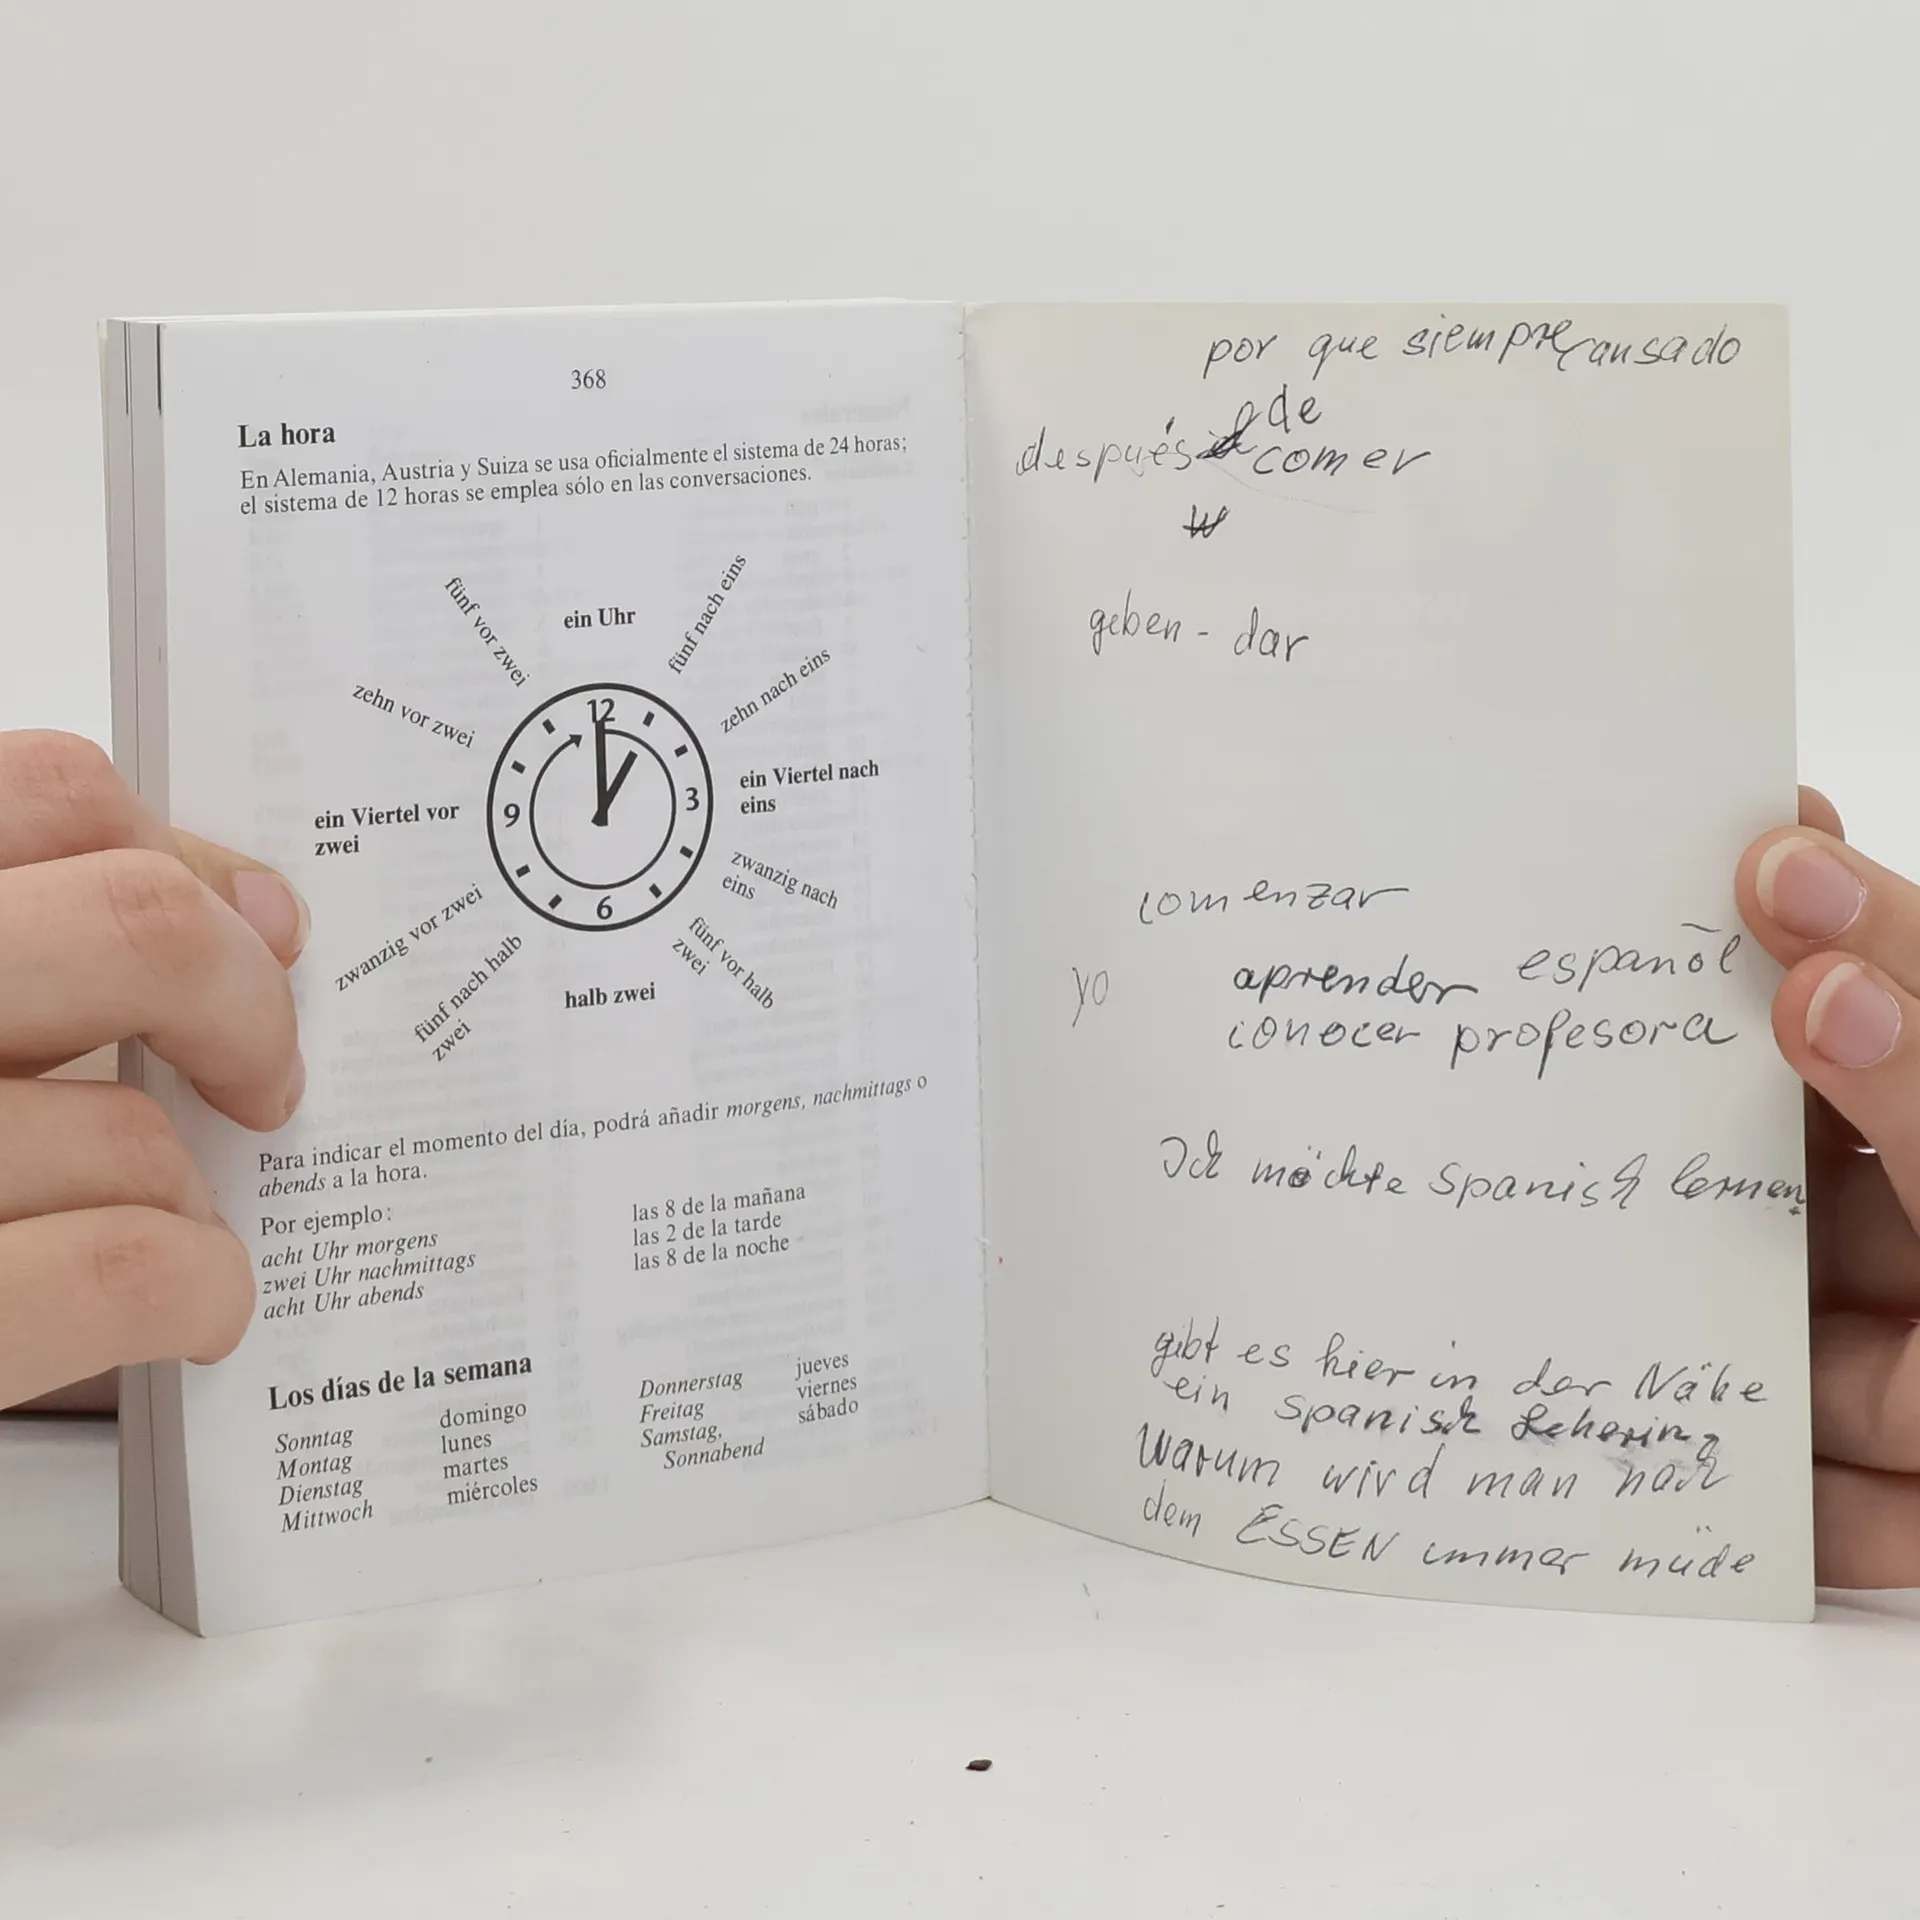 368
La hora
En Alemania, Austria y Suiza se usa oficialmente el sistema de 24 horas;
el sistema de 12 horas se emplea sólo en las conversaciones.
ein Uhr
fünf nach eins
zehn nach eins
ein Viertel nach
eins
zwanzig nach
eins
fünf vor halb
zwei
halb zwei
fünf nach halb
zwei
zwanzig vor zwei
ein Viertel vor
zwei
zehn vor zwei
fünf vor zwei
12
3
6
9
Para indicar el momento del día, podrá añadir morgens, nachmittags o
abends a la hora.
Por ejemplo:
acht Uhr morgens las 8 de la mañana
zwei Uhr nachmittags las 2 de la tarde
acht Uhr abends las 8 de la noche
Los días de la semana
Sonntag domingo
Montag lunes
Dienstag martes
Mittwoch miércoles
Donnerstag jueves
Freitag viernes
Samstag, sábado
Sonnabend
por que siempre cansado
de
después comer
w
geben - dar
comenzar
yo aprender español
conocer profesora
Ich möchte Spanisch lernen
gibt es hier in der Nähe
ein Spanisch Leherin
Warum wird man nach
dem ESSEN immer müde